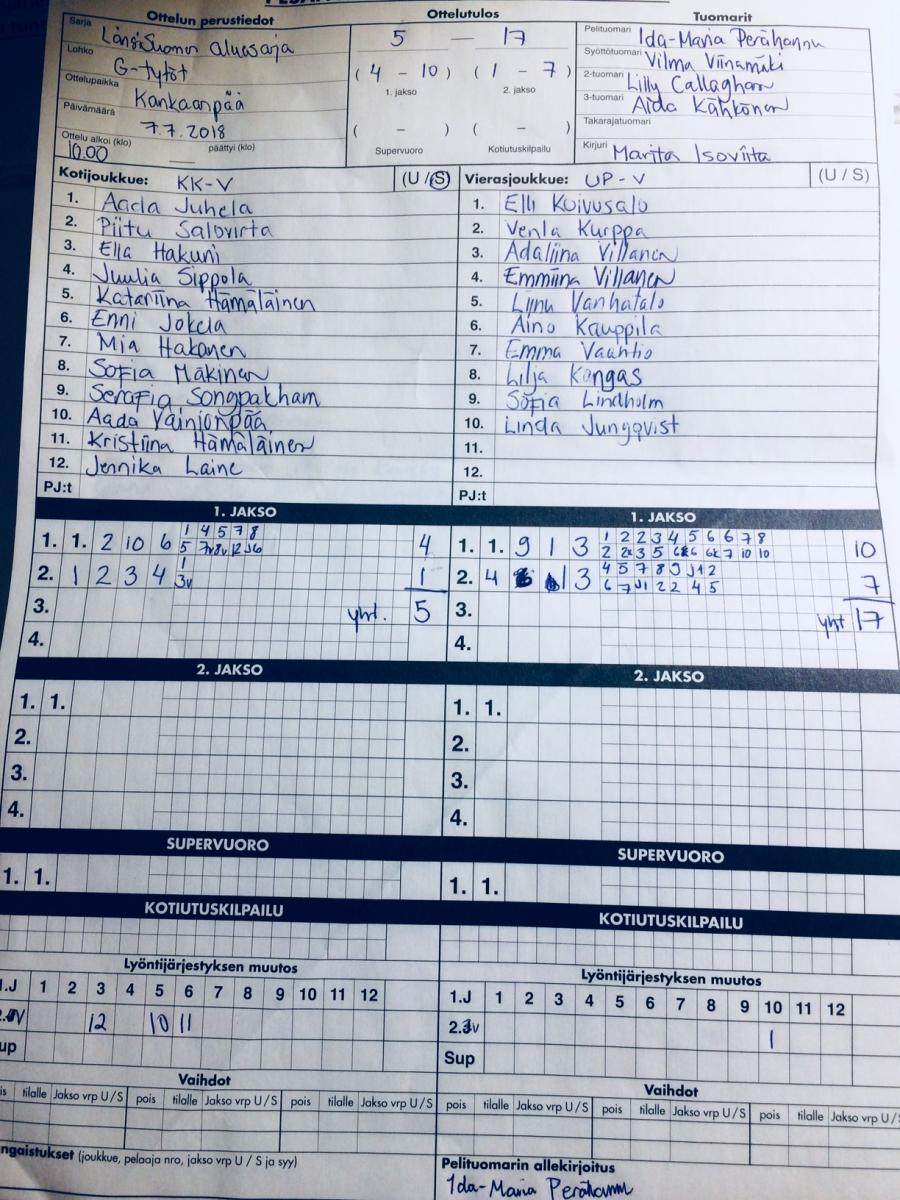 Ottelun perustiedot
Sarja Länsi-Suomen aluesarja
Lohko G-tytöt
Ottelupaikka Kankaanpää
Päivämäärä 7.7.2018
Ottelu alkoi (klo) 10.00 päättyi (klo)
Ottelutulos
5 — 17
(4 - 10) (1 - 7)
1. jakso 2. jakso
( - ) ( - )
Supervuoro Kotiutuskilpailu
Tuomarit
Pelituomari Ida-Maria Perähannu
Syöttötuomari Vilma Viinamäki
2-tuomari Lilly Callaghan
3-tuomari Aida Kähkönen
Takarajatuomari
Kirjuri Marita Isoviita
Kotijoukkue: KK-V (U / S)
1. Aada Juhela
2. Piitu Salovirta
3. Ella Hakuni
4. Juulia Sippola
5. Katariina Hämäläinen
6. Enni Jokela
7. Mia Hakanen
8. Sofia Mäkinen
9. Serafia Songpakham
10. Aada Vainionpää
11. Kristiina Hämäläinen
12. Jennika Laine
PJ:t
Vierasjoukkue: UP-V (U / S)
1. Elli Koivusalo
2. Venla Kurppa
3. Adaliina Villanen
4. Emmiina Villanen
5. Liinu Vanhatalo
6. Aino Kauppila
7. Emma Vaahtio
8. Lilja Kangas
9. Sofia Lindholm
10. Linda Jungqvist
11.
12.
PJ:t
1. JAKSO
1. 1. 2 10 6 1 4 5 7 8 4
2. 1 2 3 4 1 3v 1
3. yht. 5
4.
1. JAKSO
1. 1. 9 1 3 1 2 2 3 4 5 6 6 7 8 10
2. 4 13 4 5 7 8 9 J1 2 7
6 7 J1 2 2 4 5
3. yht 17
4.
2. JAKSO
1. 1.
2.
3.
4.
2. JAKSO
1. 1.
2.
3.
4.
SUPERVUORO
1. 1.
SUPERVUORO
1. 1.
KOTIUTUSKILPAILU
KOTIUTUSKILPAILU
Lyöntijärjestyksen muutos
1.J 1 2 3 4 5 6 7 8 9 10 11 12
12 10 11
up
Lyöntijärjestyksen muutos
1.J 1 2 3 4 5 6 7 8 9 10 11 12
1
Sup
Vaihdot
is tilalle Jakso vrp U / S pois tilalle Jakso vrp U / S pois tilalle Jakso vrp U / S
Vaihdot
pois tilalle Jakso vrp U / S pois tilalle Jakso vrp U / S pois tilalle Jakso vrp U / S
ngaistukset (joukkue, pelaaja nro, jakso vrp U / S ja syy)
Pelituomarin allekirjoitus
Ida-Maria Perähannu